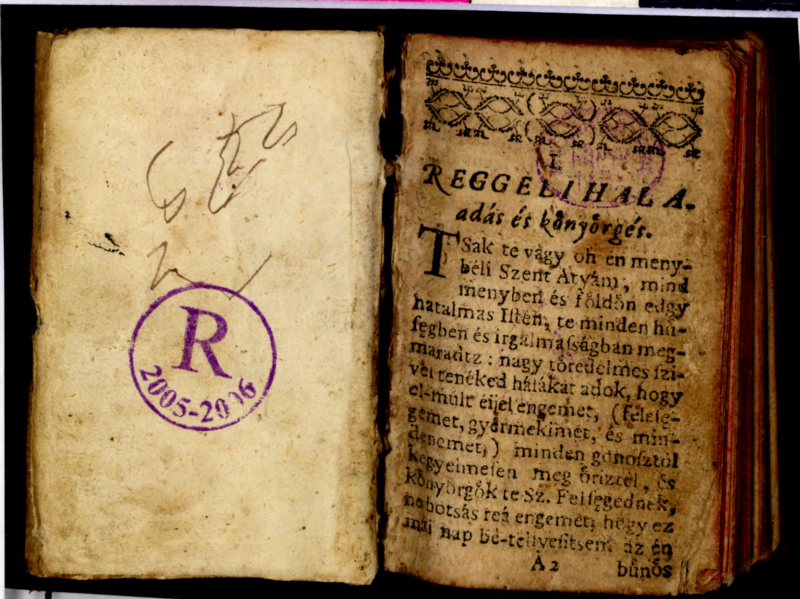 R
2005-2006
I.
REGGELI HALA-
adás és kőnyőrgés.
TSak te vagy oh én meny-
béli Szent Atyám, mind
menyben és főldőn edgy
hatalmas Iſten, te minden hű-
ſégben és irgalmaſságban meg-
maradtz: nagy tőredelmes ſzi-
vel tenéked hálákat adok, hogy
el-múlt éjjel engemet, (feleſé-
gemet, gyermekimet, és min-
denemet,) minden gonoſztól
kegyelmeſen meg őriztél, és
kőnyőrgők te Sz. Felſégednek,
ne botsás reá engemet, hogy ez
mái nap bé-tellyeſitsem az én
A 2
bűnős